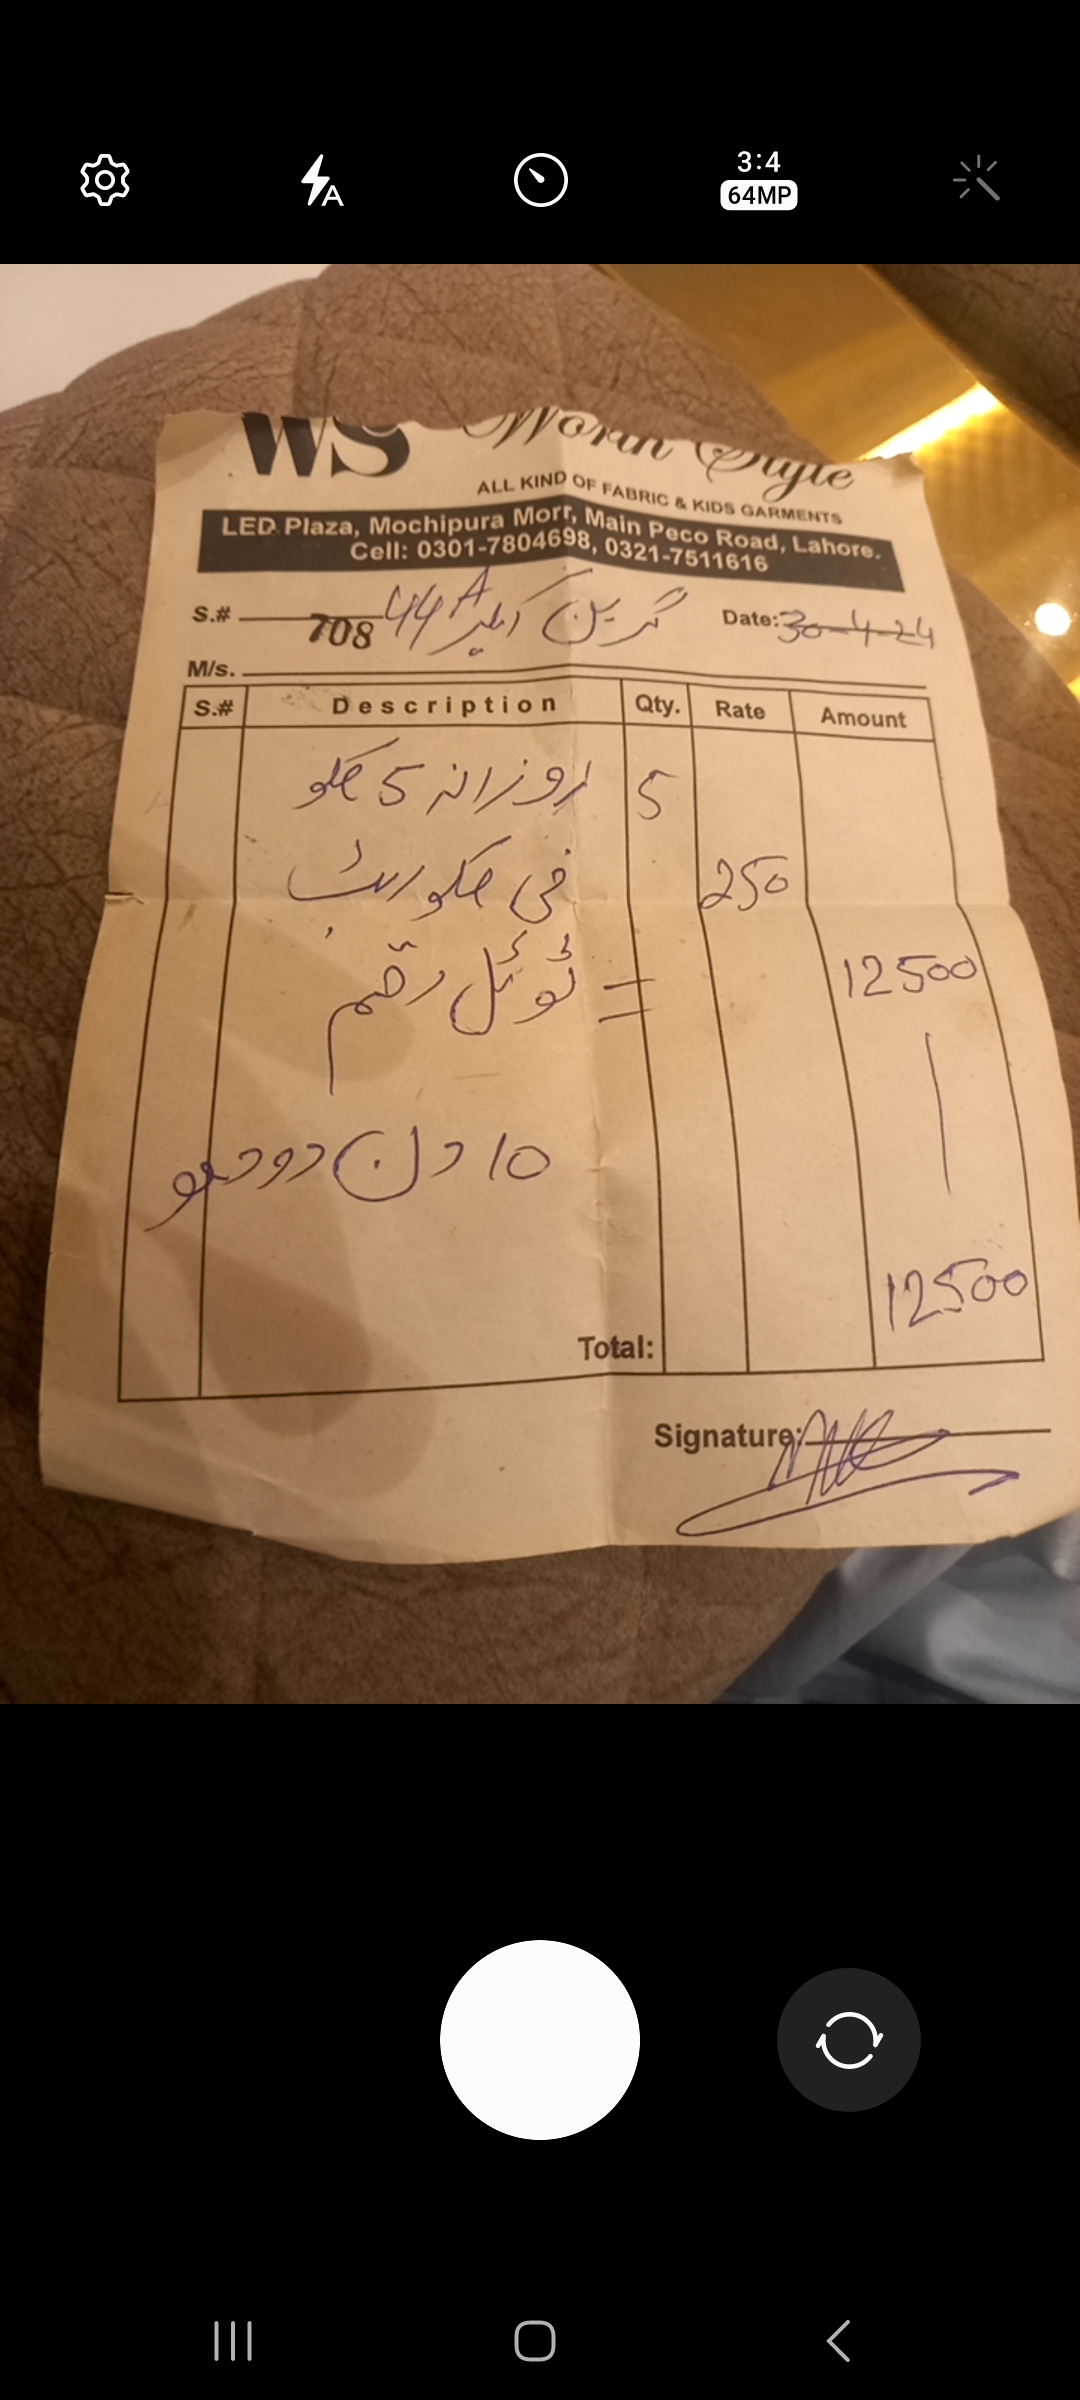 3:4
64MP
WS Worth Style
ALL KIND OF FABRIC & KIDS GARMENTS
LED Plaza, Mochipura Morr, Main Peco Road, Lahore.
Cell: 0301-7804698, 0321-7511616
S.# 708 44A گرین Date: 30-4-24
M/s.
S.# Description Qty. Rate Amount
روزانہ 5 کلو 5
فی کلو ریٹ 250
= ٹوٹل رقم 12500
10 دن دودھ
Total: 12500
Signature: